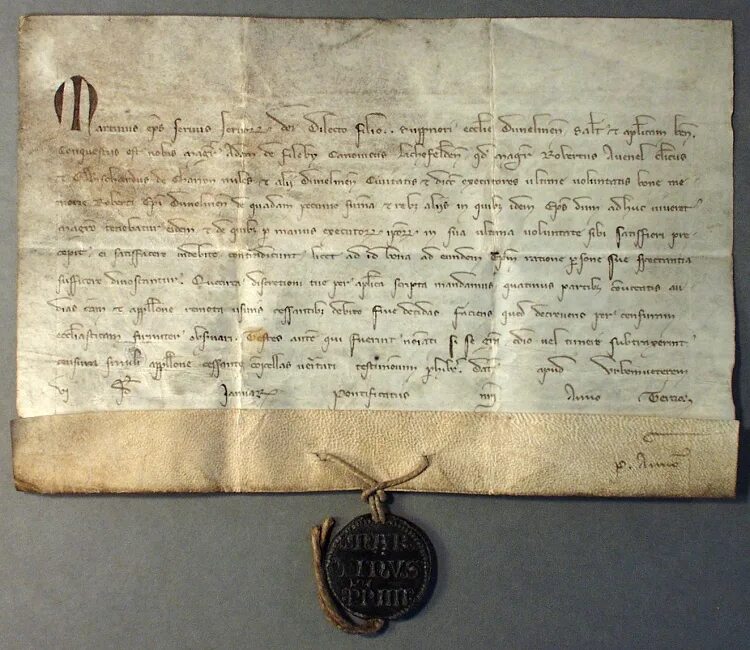 Martinus ep̄s servus servoꝝ dei Dilecto filio .. Suppriori ecclie Dunelmen̄ Salt̄ et ap̄licam ben̄
Conquestus est nobis magr̄ Adam de Fileby Canonicus Lichefelden̄ qd̄ magr̄ Robertus Avenel clericus
et Guischardus de Charron miles et alij Dunelmen̄ Civitatis et dioc̄ executores ultime voluntatis bone me
morie Roberti Ep̄i Dunelmen̄ de quadam pecunie summa et reb̄ alijs in quib̄ idem Ep̄s dum adhuc viveret
magr̄o tenebatur eidem et de quib̄ p manus executoꝝ ip̄oꝝ in sua ultima voluntate sibi satisfieri pre
cepit ei satisfacere indebite contradicunt licet ad id bona ad eundem Ep̄m ratione p̄sone sue spectantia
sufficere dinoscantur Quocirca discretioni tue per ap̄lica scripta mandamus quatinus partib̄ convocatis au
dias cām et appell̄one remota usuris cessantib̄ debito fine decidas faciens quod decreveris per censuram
ecclesiasticam firmiter observari Testes autē qui fuerint noīati si se grā odio vel timore subtraxerint
censura simili appell̄one cessante compellas veritati testimonium phib̄e Dat̄ apud Urbemveterem
vj kl̄ Januar̄ Pontificatus nr̄i Anno Tertio
p. Anno